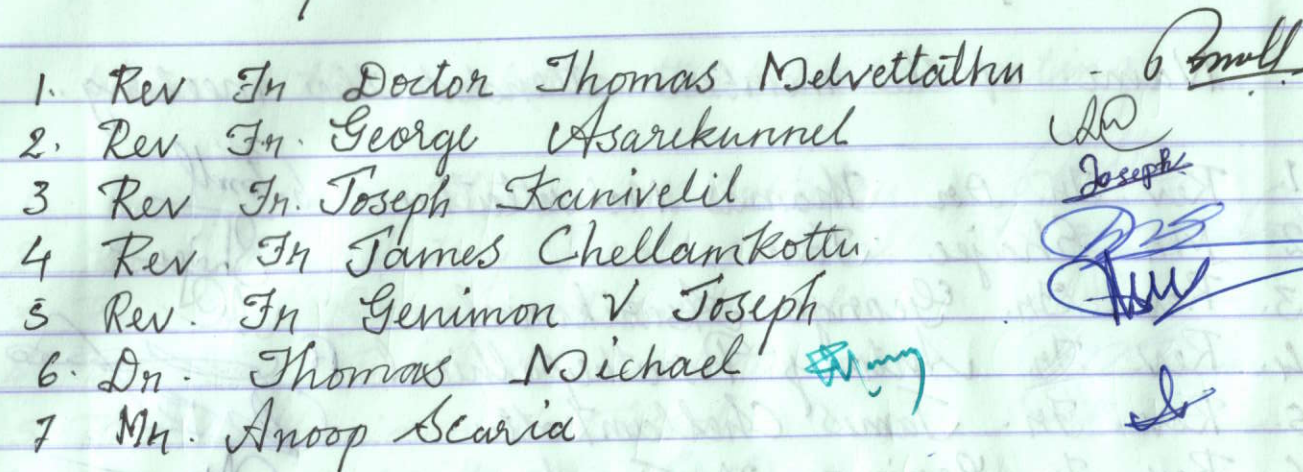 1. Rev Fr Doctor Thomas Melvettathu -
2. Rev Fr. George Asarikunnel
3 Rev Fr. Joseph Kanivelil Joseph
4 Rev. Fr James Chellamkottu
5 Rev. Fr Genimon V Joseph
6. Dr. Thomas Michael
7 Mr. Anoop Scaria